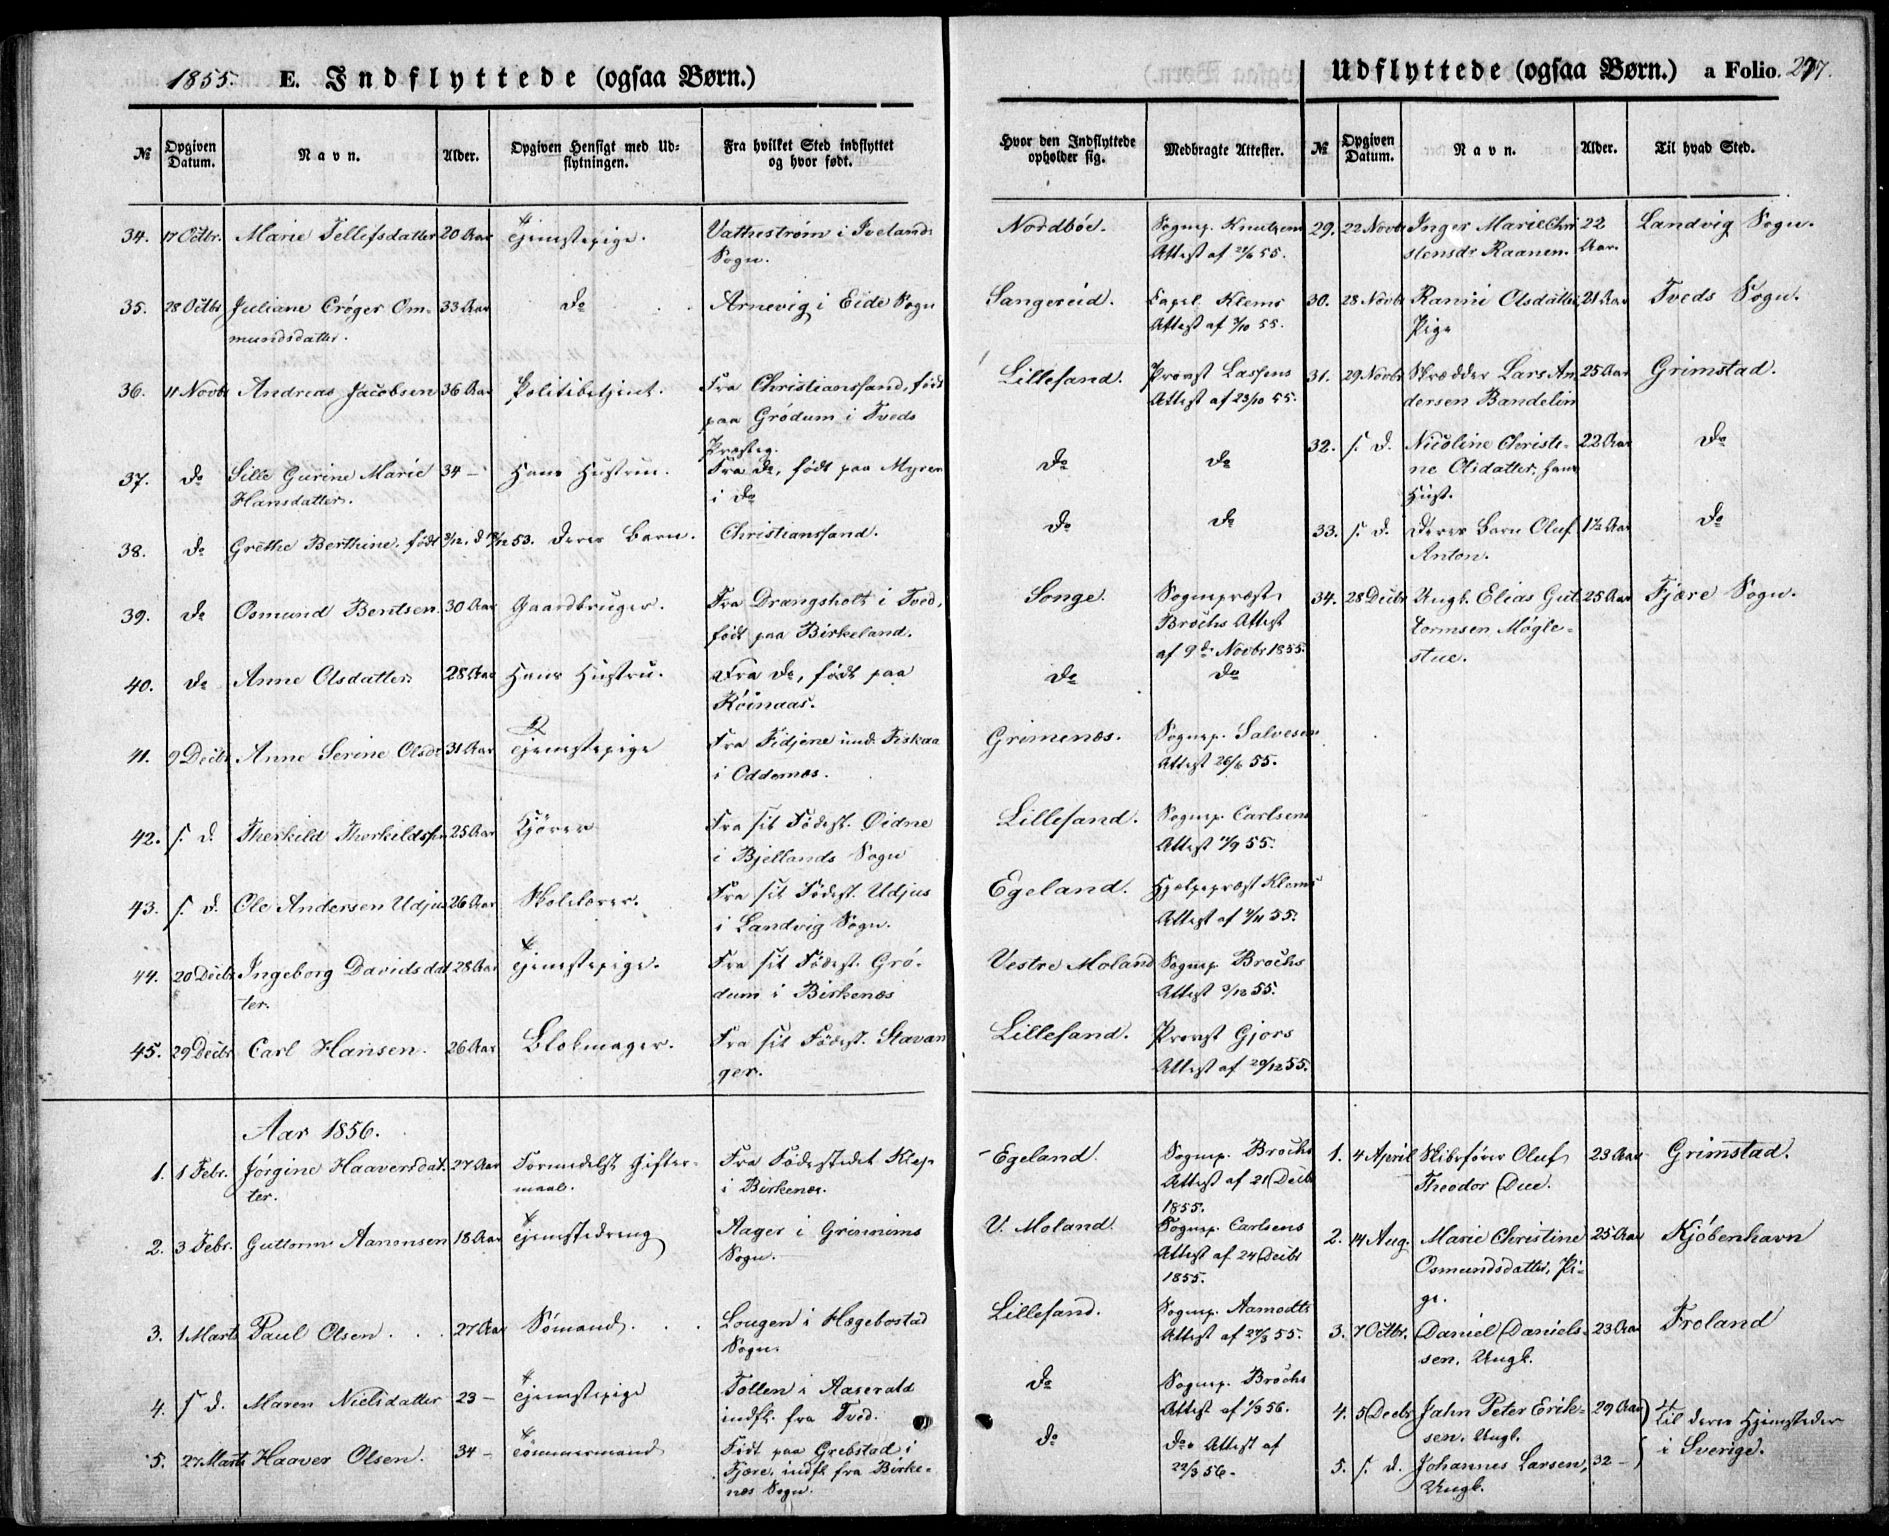 1855. E. Indflyttede (ogsaa Børn.)
№ Opgiven Datum. Navn. Alder. Opgiven Hensigt med Udflytningen. Fra hvilket Sted indflyttet og hvor født.
34. 17 Octbr. Marie Tellefsdatter 20 Aar Tjenestepige. Vatheström i Ivelands
Sogn.
35. 28 Octbr Juliane Crøger Om- 33 Aar do Arnevig i Eide Sogn
mundsdatter.
36. 11 Novbr Andreas Jacobsen 36 Aar Politibetjent. Fra Christianssand, født
paa Grödum i Tveds
Præsteg.
37. do Sille Gurine Marie 34 — Hans Hustru. Fra do, født paa Myren
Hansdatter. i do
38. do Grethe Berthine, født 53. deres Barn. Christianssand.
39. do Osmund Bentsen. 30 Aar Gaardbruger. Fra Drangsholt i Tved,
født paa Birkeland.
40. do Anne Olsdatter 28 Aar Hans Hustru. Fra do, født paa
Röinaas.
41. 9 Decbr. Anne Serine Olsdr 31 Aar Tjenestepige Fra Fidjene und. Fiskaa
i Oddernæs.
42. s. d. Therkild Therkildssen 25 Aar Fra sit Födest. Øidne
i Bjellands Sogn
43. s. d. Ole Andersen Udjus 26 Aar Skolelærer. Fra sit Födest. Udjus
i Landvig Sogn.
44. 20 Decbr Ingeborg Davidsdat 28 Aar Tjenestepige. Fra sit Födest. Grö-
ter. dum i Birkenæs
45. 29 Decbr Carl Hansen. 26 Aar Blokmager. Fra sit Födest. Stavan
ger.
Aar 1856.
1. 1 Febr. Jörgine Haaversdat- 27 Aar Formedelst Gifter- Fra Födestedet Klep
ter. maal. i Birkenæs.
2. 3 Febr. Guttorm Aanonsen 18 Aar Tjenestedreng Aager i Grinnims
Sogn.
3. 1 Marts Paul Olsen 27 Aar Sømand. Lougen i Hægebostad
Sogn.
4. s d. Maren Nielsdatter 23 — Tjenestepige Tollen i Aaserald
indfl. fra Tved.
5. 27 Marts Haaver Olsen. 34 — Tömmermand Født paa Grebstad i
Fjære, indfl. fra Birke-
næs Sogn.
Udflyttede (ogsaa Børn.) a Folio. 297.
Hvor den Indflyttede opholder sig. Medbragte Attester. № Opgiven Datum. Navn. Alder. Til hvad Sted.
Nordböe. Sognep. Knutzens 29. 22 Novbr Inger Marie Chri 22 Landvig Sogn.
Attest af 55. stensdr Raanen. Aar.
Sangereid. Capel. Klems 30. 28 Novbr Olsdatter, 21 Aar Tveds Sogn.
Attest af 7/10 55. Pige
Lillesand. Provst Lassens 31. 29 Novbr Skrædder Lars An 25 Aar Grimstad.
Attest af 23/10 55. dersen Bandelin
do do 32. s. d. Nicoline Christi- 22 Aar do
ne Olsdatter, hans
Hust.
do do 33. s. d. Deres Barn Oluf 1½ Aar do
Anton.
Songe. Sognepræst 34. 28 Decbr Ungk. Elias Gut 25 Aar Fjære Sogn.
Brochs Attest tormsen Møgle-
af 9de Novbr 1855. stue.
do do
Grimenæs. Sognep. Salvesens
Attest 26/6 55.
Lillesand. Sognep. Carlsens
Attest 55.
Egeland. Hjælpepræst Klems
Attest af 55.
Vestre Moland Sognep. Brochs
Attest 55.
Lillesand. Provst Gjörs
Attest af 20/12 55.
Egeland. Sognep. Brochs 1. 4 April Skibsfører Oluf 23 Aar Grimstad.
Attest af 21 Decbr Theodor Due.
1855.
V. Moland. Sognep. Carlsens 2. 14 Aug. Marie Christine 25 Aar Kjöbenhavn
Attest af 24 Decbr Osmundsdatter, Pi-
1855. ge.
Lillesand. Sognep. Aamodts 3. 7 Octbr. Daniel Daniels- 23 Aar Froland
Attest af 55. sen. Ungk.
do Sognep. Brochs 4. 5 Decbr Jahn Peter Erik- 29 Aar til deres Hjemsteder
Attest af 1/3 56. sen. Ungk. i Sverige.
do do Attest af 5. s. d. Johannes Larsen, 32 —
22/3 56. Ungk.